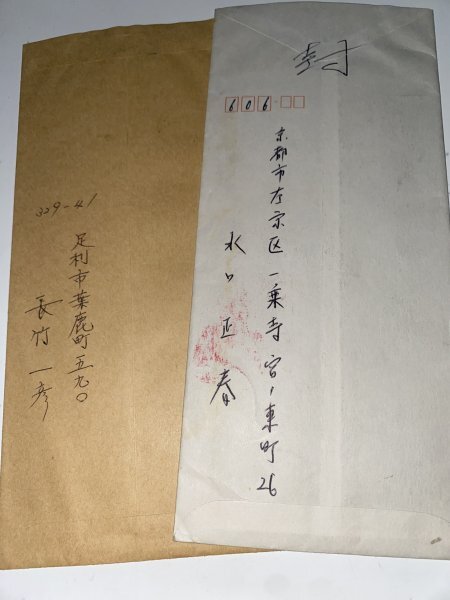 封
606
京都市左京区一乗寺宮ノ東町26
水口正春
329-41
足利市葉鹿町五九〇
長竹一彦